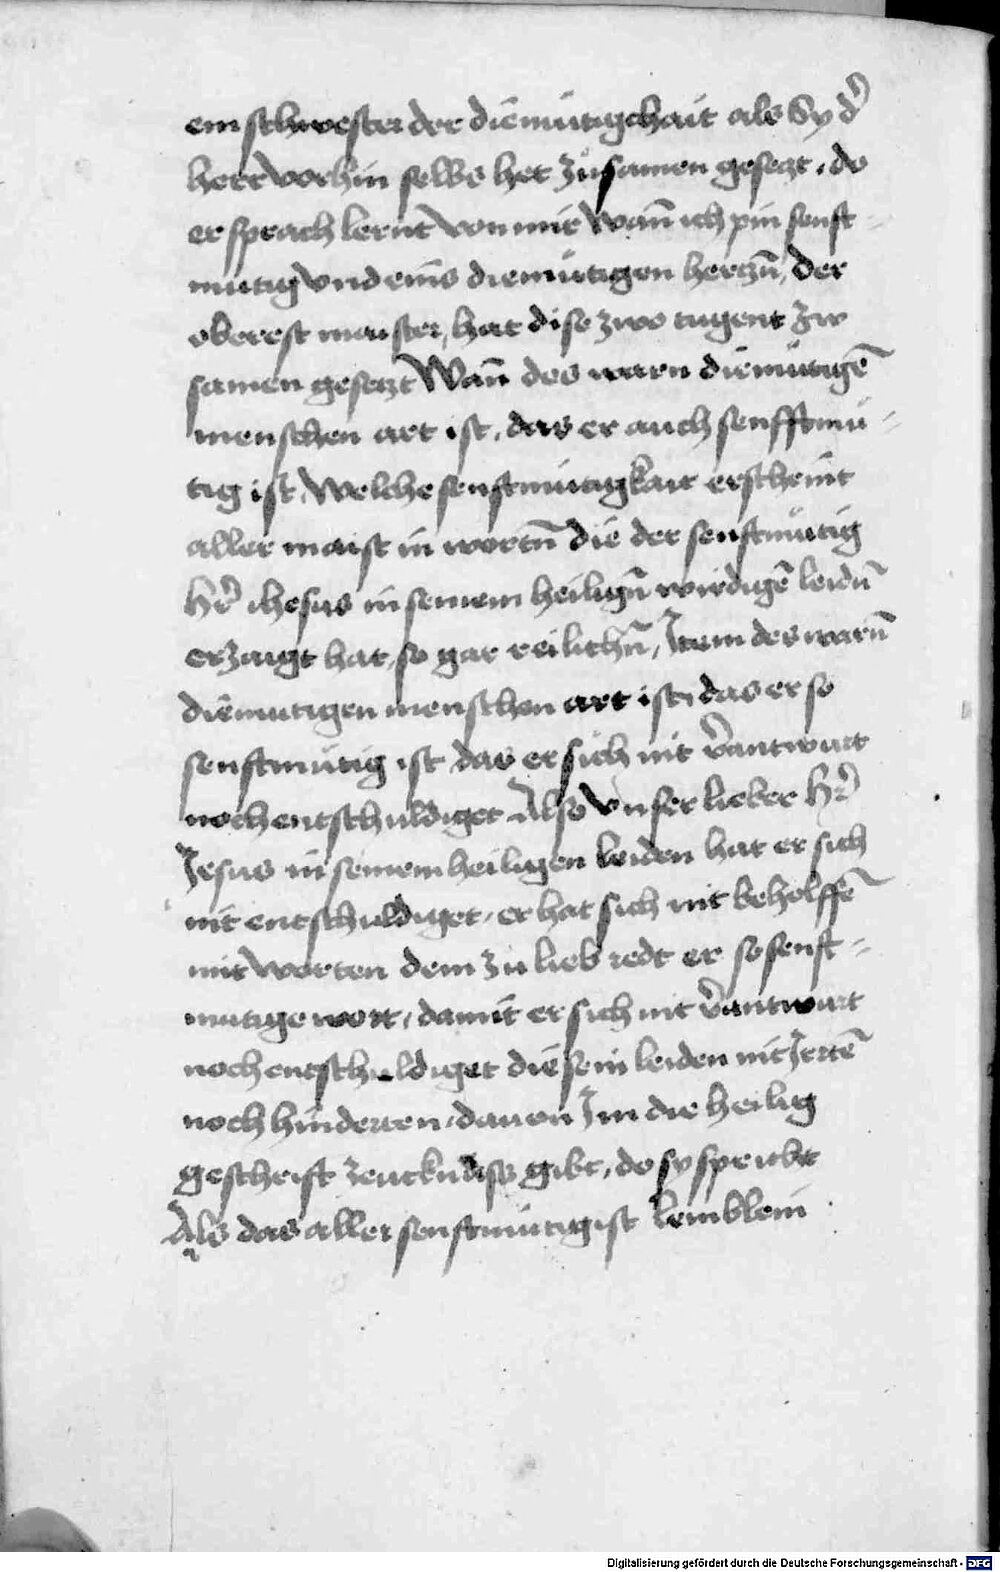 ein schwester der diemütigchait als Sy dˢ
herr vorhin selbs het zůsamen gesetzt, do
er sprach lernt von mir wañ ich pin senft=
mütig vnd eins diemütigen hertzn̄, der
oberest maister, hat dise zwo tugent zw
samen gesetzt Wañ des warn diemütigē
menschen art ist, das er auch senfftmü=
tig ist, Welche senftmütigkait erscheint
aller maist in wortn̄ die der senftmütig
hˢ ihesus in seinem heilign̄ wirdigē leidn̄
erzaigt hat, so gar reilichn̄, Item des warn̄
diemutigen menschen art ist, das er so
senftmütig ist das er sich nit vˢantwurt
noch entschuldiget Also vnser lieber hˢ
Jesus in seinem heiligen leiden hat er sich
nit entschuldiget, er hat sich nit beholffē
mit worten dem zu lieb redt er so senft=
mutige wort, damit er sich nit vˢantwurt
noch entschuldiget die sein leiden nit Irrtē
noch hinderten, dauon Im die heilig
geschrift zeucknüss gibt, do sy spricht
Als das aller senftmütigist lemblein
Digitalisierung gefördert durch die Deutsche Forschungsgemeinschaft - DFG